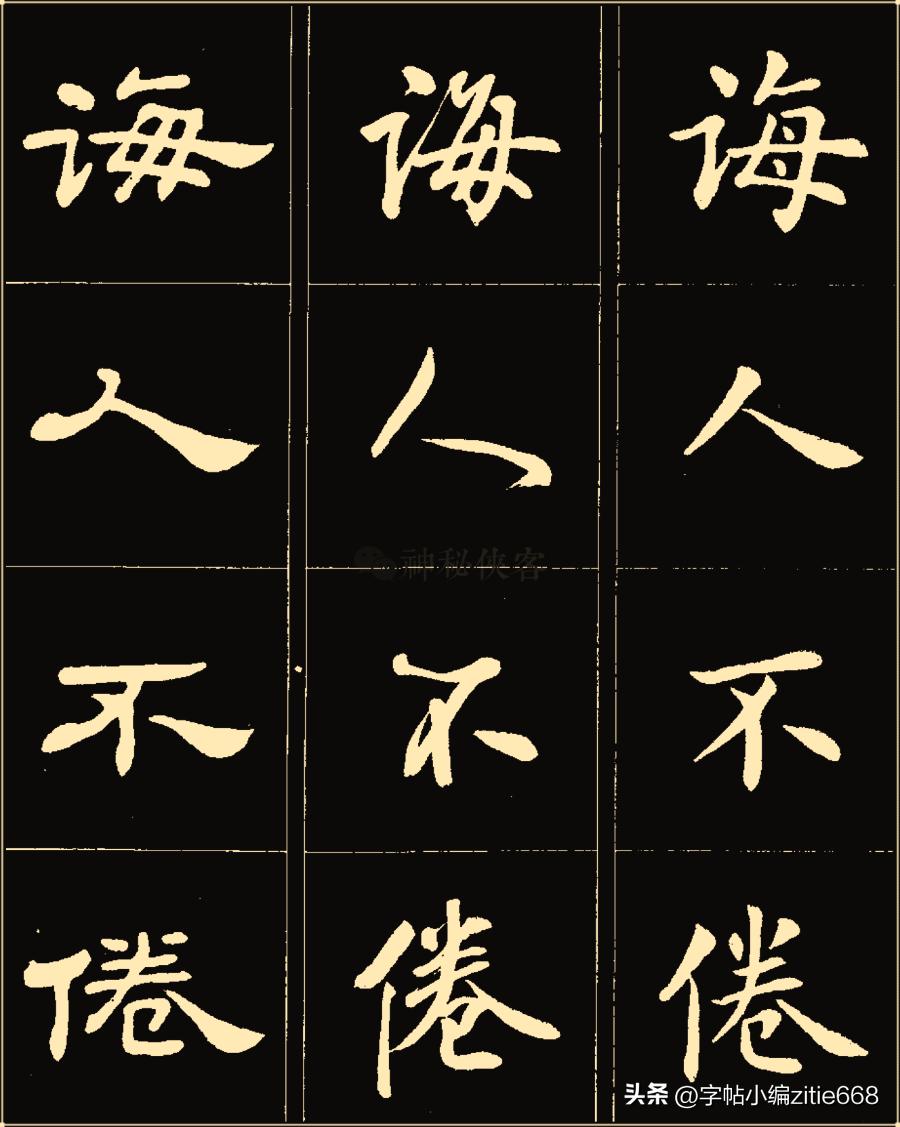 诲 诲 诲
人 人 人
不 不 不
倦 倦 倦
神秘侠客
头条 @字帖小编zitie668